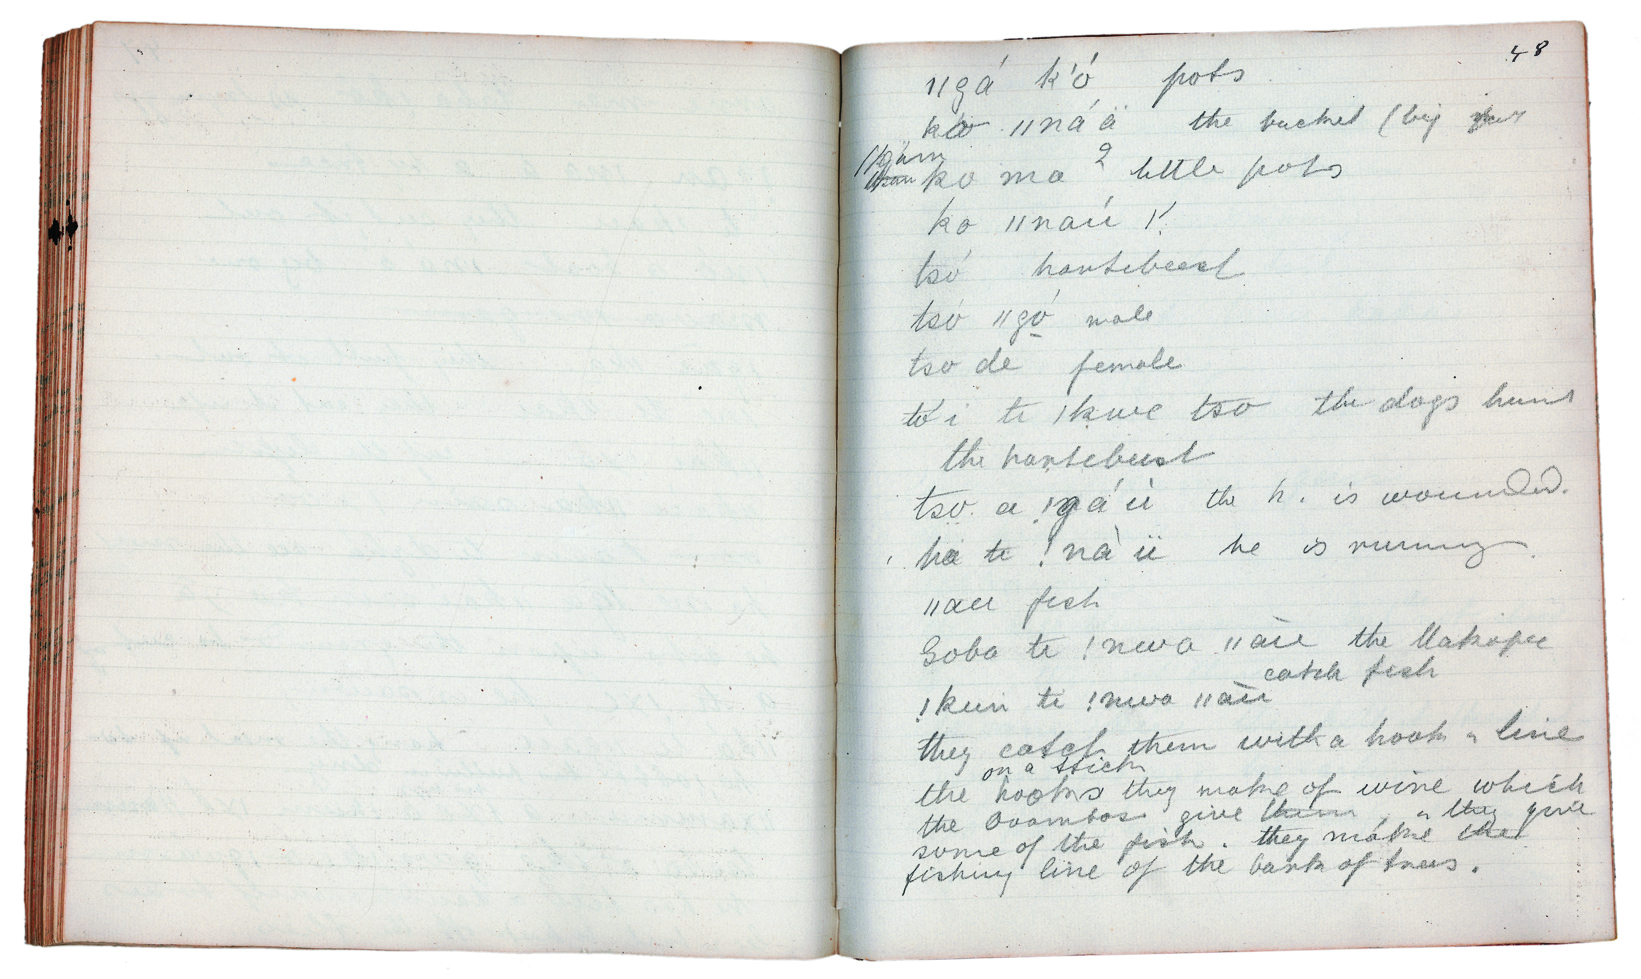 48
ǁgá k'ó pots
ko ǁná'ä the bucket (big
ǁgum
ko ma 2 little pots
ko ǁnaú
tsó hartebeest
tsó ǁgó male
tso de female
to'i te ǀkwe tso the dogs hunt
the hartebeest
tso a !gá'ú the h. is wounded.
ha te !nà üi he is running.
ǁau fish
Goba te !nwa ǁàu the Makopee
catch fish
!kun te !nwa ǁàu
they catch them with a hook & line
on a stick
the hooks they make of wire which
the Ovambos give them, & they give
some of the fish. they make the
fishing line of the bark of trees.